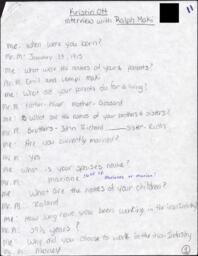 Kristin Ott
interview with Ralph Maki
11
me: when were you born?
Mr. M: January 23, 1915
me: What were the names of your parents?
Mr. M: Emil and Lempi Maki
me: What did your parents do for a living?
Mr. M: Father- Mother-
me: What are the names of your brothers + sisters?
Mr. M: Brothers - John Richard Sister - Ruth
me: Are you currently married?
Mr. M: Yes
me: What is your spouses name?
Mr. M: marione
me: What are the names of your children?
Mr. M: Roland
me: How long have you been working in the Iron Industry
Mr. M: 39½ years?
me: Why did you choose to work in the Iron Industry
Mr. M: Money
1